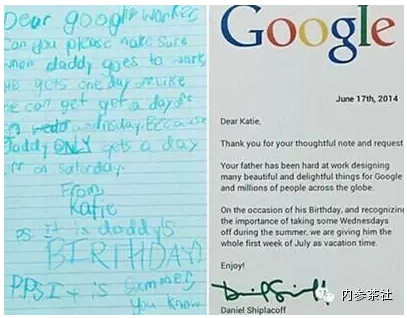 Dear google worker
Can you please make sure
when daddy goes to work
he gets one day off. Like
he can get get a day off
on wednesday. Because
daddy ONLY gets a day
off on saturday.
From
Katie
ps it is daddy's
BIRTHDAY!
P.P.S It is summer
you know
Google
June 17th, 2014
Dear Katie,
Thank you for your thoughtful note and request
Your father has been hard at work designing
many beautiful and delightful things for Google
and millions of people across the globe.
On the occasion of his Birthday, and recognizing
the importance of taking some Wednesdays
off during the summer, we are giving him the
whole first week of July as vacation time.
Enjoy!
Daniel Shiplacoff
内参茶社